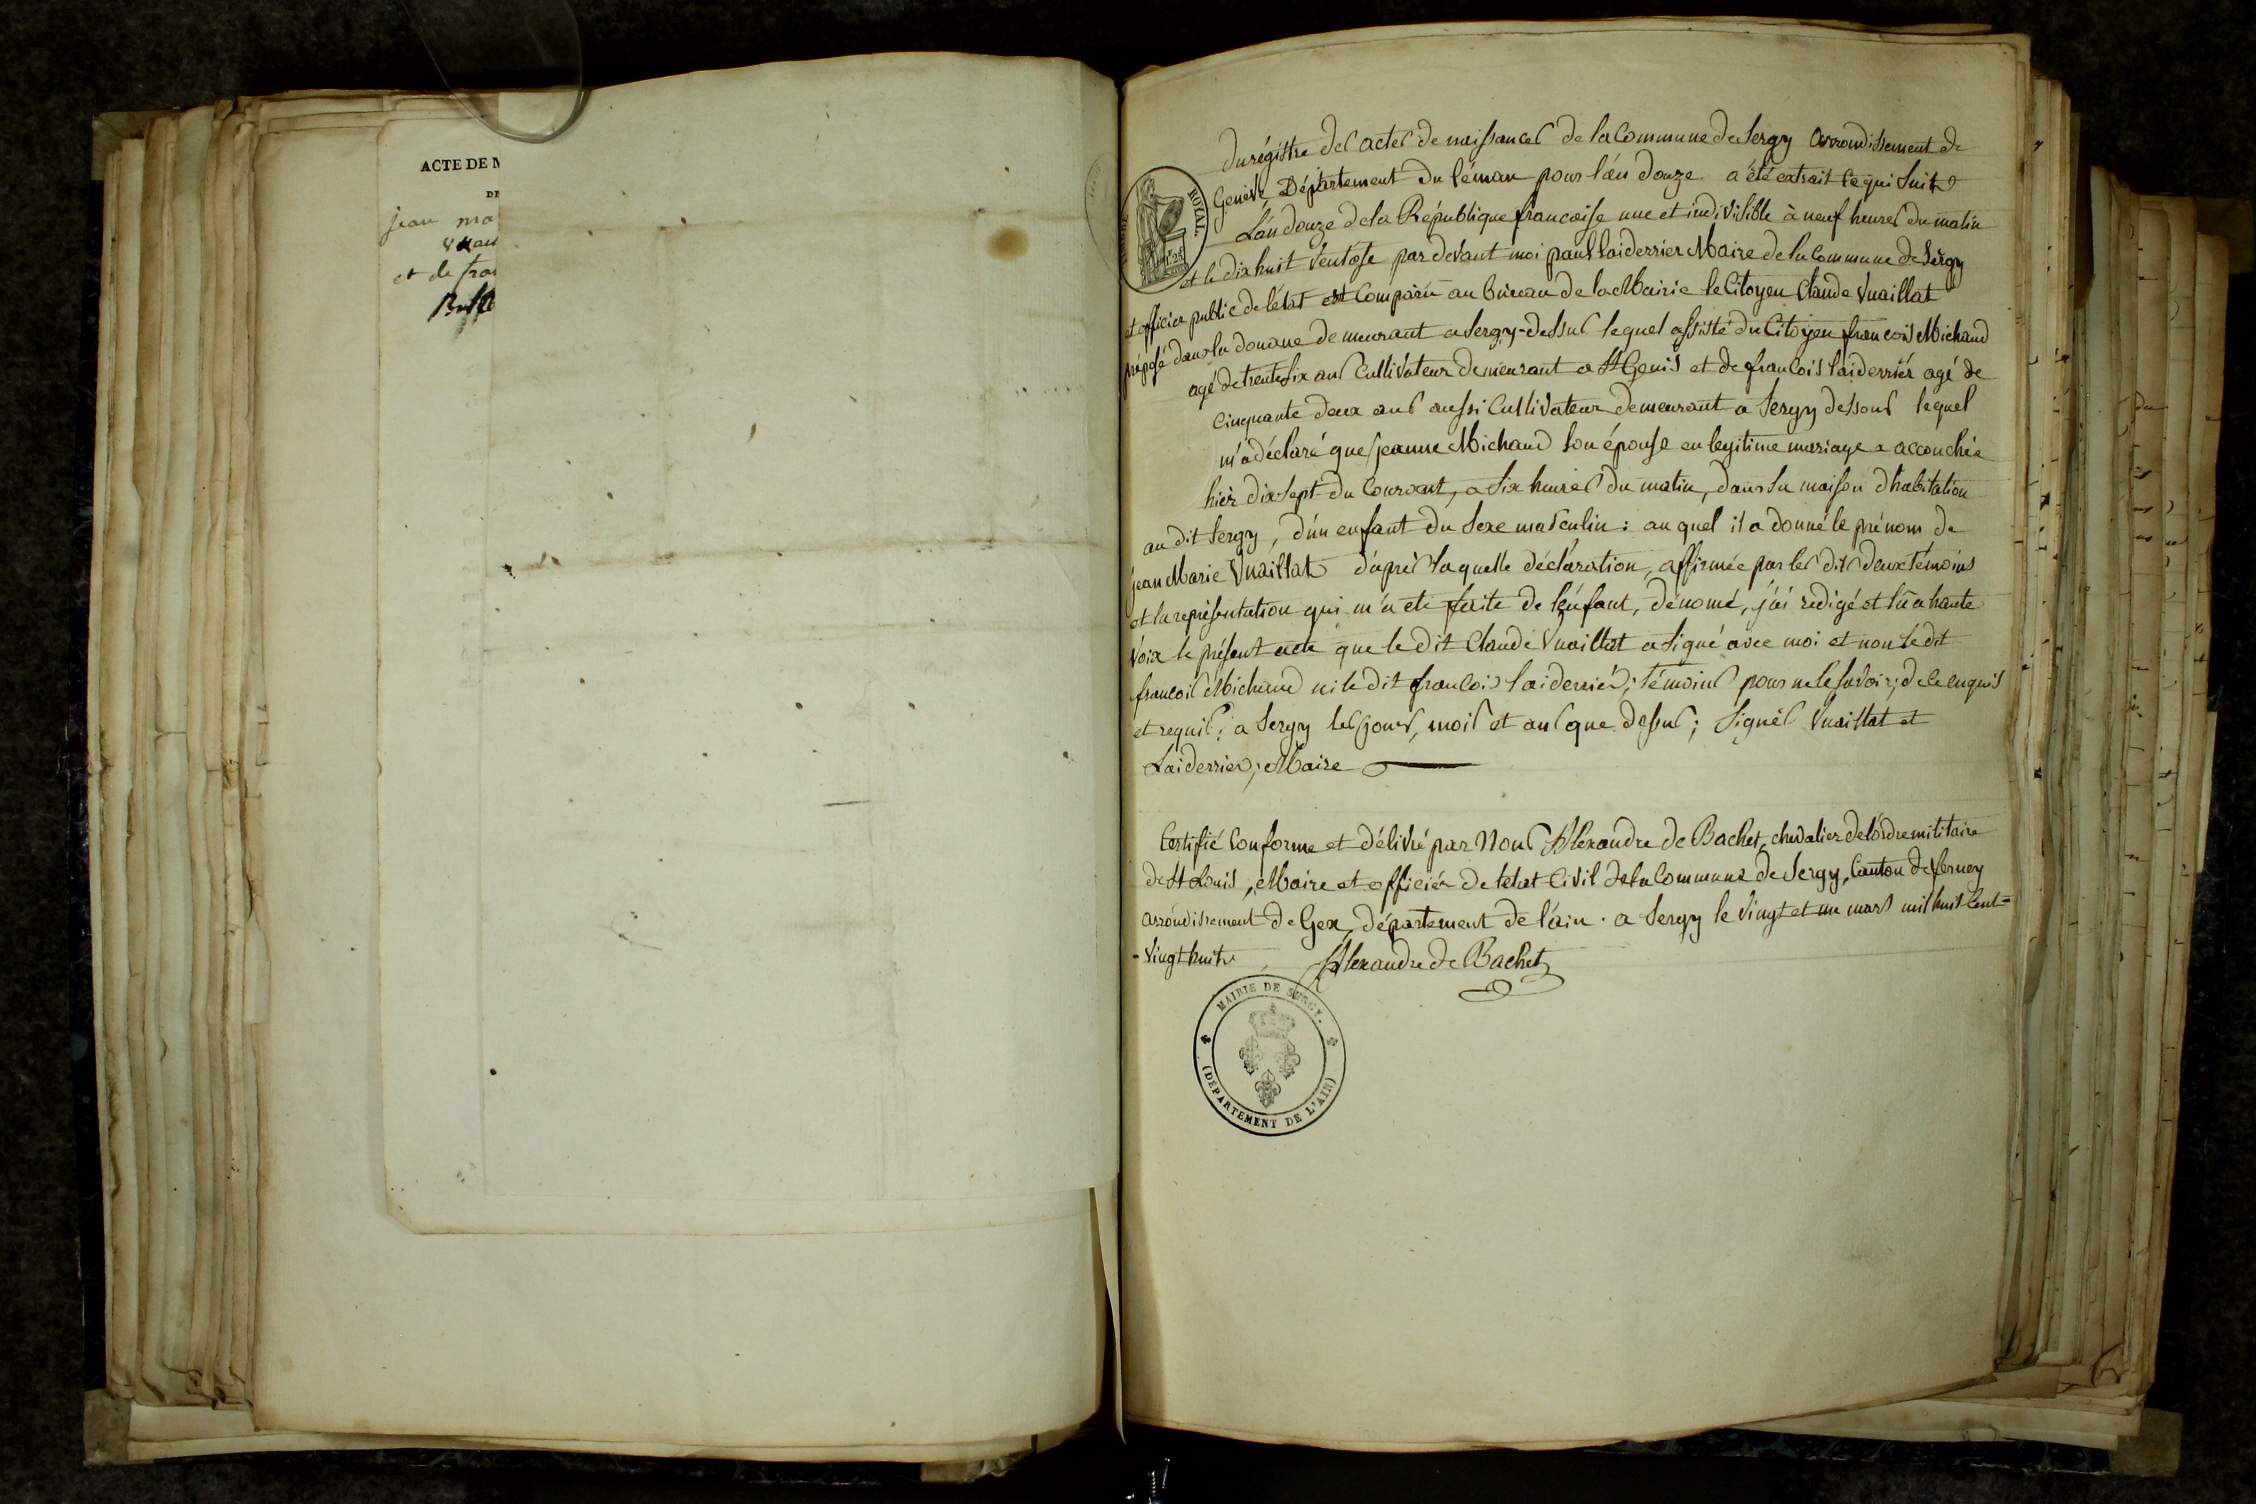 ACTE DE M
DE
jean ma
et de fra
Du régistre des actes de naissances de la Commune de Sergy arrondissement de
Genève, Département du léman pour l'an douze a été extrait ce qui suit
L'an douze de la République francaise une et indivisible à neuf heures du matin
et le dix huit ventose par devant moi paul Laiderrier Maire de la Commune de Sergy
et officier public de l'état est Comparu au bureau de la Mairie le Citoyen Claude Vuaillat
préposé dans la douane demeurant a Sergy-dessus lequel assisté du Citoyen francois Michaud
agé de trente six ans Cultivateur demeurant a St Genis et de francois Laiderrier agé de
Cinquante deux ans aussi Cultivateur demeurant a Sergy dessous lequel
m'a déclaré que jeanne Michaud son épouse en legitime mariage a accouchée
hier dix sept du Courant, a six heures du matin, dans sa maison d'habitation
au dit Sergy, d'un enfant du Sexe masculin : au quel il a donné le prénom de
jean Marie Vuaillat d'après laquelle déclaration, affirmée par les dits deux témoins
et la représentation qui m'a eté faite de l'enfant, dénomé, j'ai redigé et lu a haute
voix le présent acte que le dit Claude Vuaillat a signé avec moi et non le dit
francois Michaud ni le dit francois Laiderrier, témoins pour ne le savoir; de ce enquis
et requis; a Sergy les jours, mois et ans que dessus; Signés Vuaillat et
Laiderrier, Maire
Certifié Conforme et délivré par Nous Alexandre de Bachet, chevalier de l'ordre militaire
de St Louis, Maire et officier de l'etat Civil de la Commune de Sergy, Canton de ferney
arrondissement de Gex, département de l'ain. a Sergy le vingt et un mars mil huit Cent=
-vingt huit
Alexandre de Bachet
TIMBRE ROYAL.
MAIRIE DE SERGY.
(DÉPARTEMENT DE L'AIN)